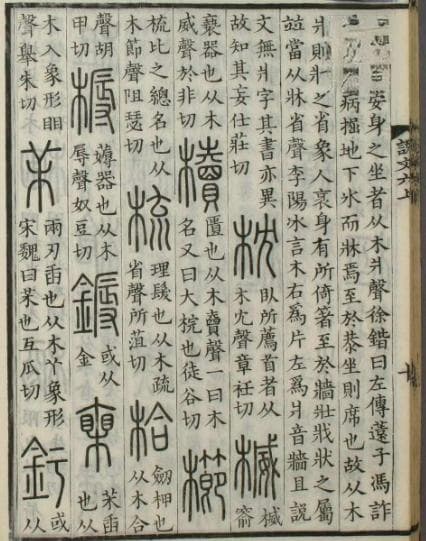 安身之坐者从木爿聲徐鍇曰左傳薳子馮詐
病掘地下冰而牀焉至於恭坐則席也故从木
爿則牀之省象人衺身有所倚箸至於牆壯戕狀之屬
竝當从牀省聲李陽冰言木右爲片左爲爿音牆且說
文無爿字其書亦異故知其妄仕莊切 枕 臥所薦首者从木冘聲章衽切 楲 楲窬
褻器也从木威聲於非切 櫝 匱也从木賣聲一曰木名又曰大梡也徒谷切 櫛
梳比之總名也从木節聲阻瑟切 梳 理髮也从木疏省聲所菹切 枱 劒柙也从木合
聲胡甲切 槈 薅器也从木辱聲奴豆切 鎒 或从金 茉臿也从
木入象形䀠聲舉朱切 茉 兩刃臿也从木丫象形宋魏曰茉也互瓜切 釫 或从
說文六上